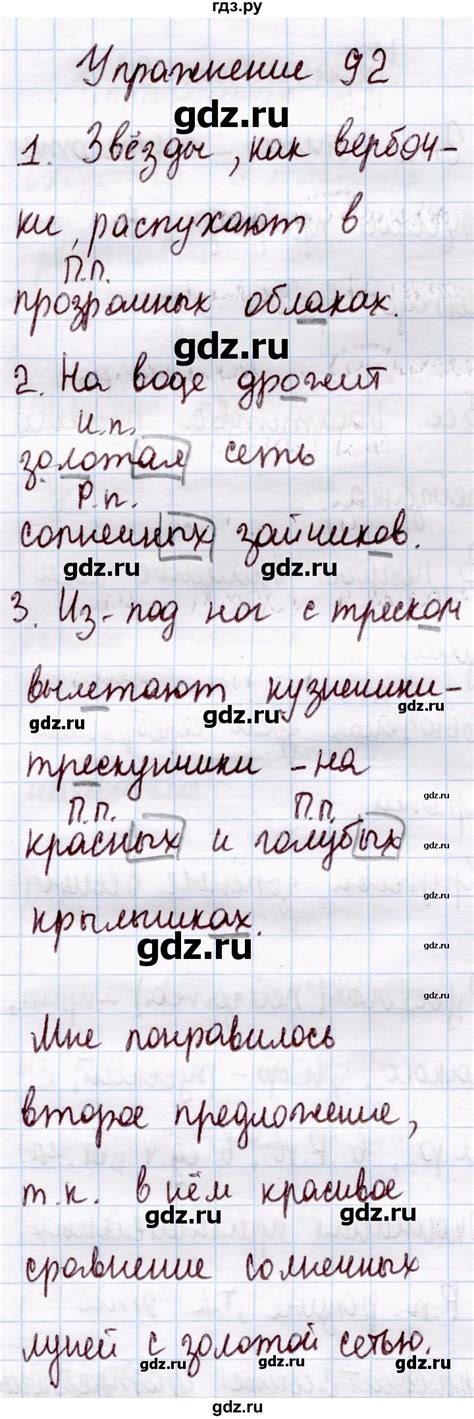 гдз.ру
Упражнение 92
gdz.ru
1. Звёзды, как вербоч-
ки, распухают в
gdz.ru
П.п.
прозрачных облаках.
gdz.ru
2. На воде дрожит
И.п.
золотая сеть
gdz.ru
Р.п.
солнечных зайчиков.
gdz.ru gdz.ru
3. Из-под ног с треском
gdz.ru
вылетают кузнечики-
gdz.ru gdz.ru gdz.ru
трескунчики - на
gdz.ru
П.п. П.п.
gdz.ru
красных и голубых
gdz.ru
крылышках.
gdz.ru
gdz.ru
gdz.ru
Мне понравилось
gdz.ru
второе предложение,
gdz.ru gdz.ru
т.к. в нём красивое
gdz.ru gdz.ru
сравнение солнечных
gdz.ru
лучей с золотой сетью.
gdz.ru gdz.ru